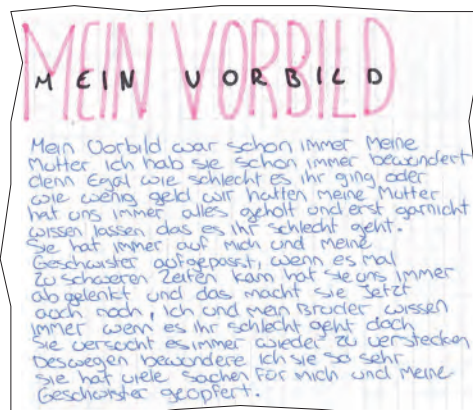 MEIN VORBILD
MEIN VORBILD
Mein Vorbild war schon immer Meine
Mutter ich hab sie schon immer bewundert
denn Egal wie schlecht es ihr ging oder
wie wenig geld wir hatten meine Mutter
hat uns immer alles geholt und erst garnicht
wissen lassen das es ihr schlecht geht.
Sie hat immer auf mich und meine
Geschwister aufgepasst, wenn es mal
zu schweren Zeiten kam hat sie uns immer
abgelenkt und das macht sie Jetzt
auch noch, Ich und mein Bruder wissen
Immer wenn es ihr schlecht geht doch
sie versucht es immer wieder zu verstecken
Deswegen bewundere ich sie so sehr
Sie hat viele Sachen für mich und meine
Geschwister geopfert.